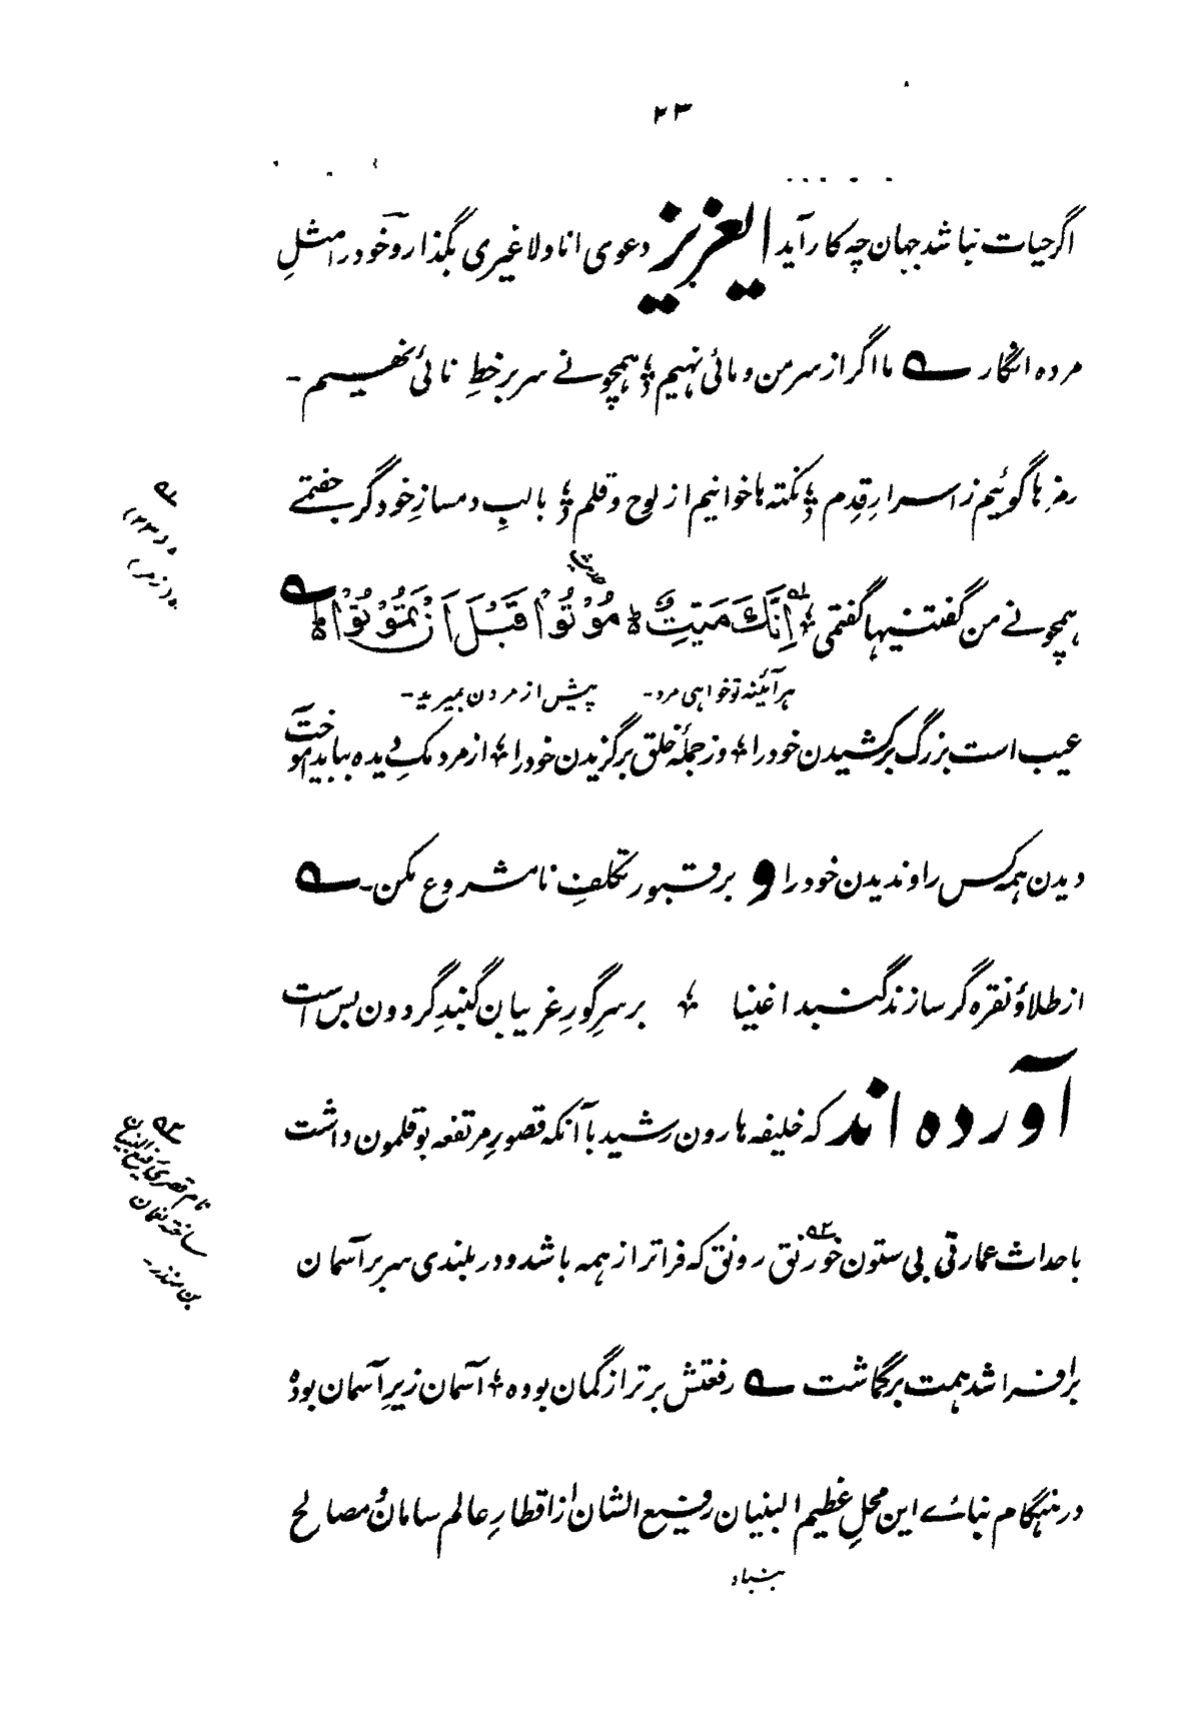 ۲۳
اگر حیات نباشد جهان چه کار آید ای عزیز دعوی انا ولا غیری بگذار و خود را مثلِ
مرده انگار ؎ ما اگر از سر من و مائی نهیم ؛ همچو نے سر بر خطِ نائی نهیم ۔
رمزها گوئیم ز اسرارِ قِدم ؛ نکته ها خوانیم از لوح و قلم ؛ با لبِ دمسازِ خود گر جفتمے
همچو نے من گفتنیها گفتمی ؛ اِنَّكَ مَيِّتٌ ط مُوْتُوْا قَبْلَ اَنْ تَمُوْتُوْا ط ؎
حدیث
هر آئینه تو خواهی مرد ۔ پیش از مردن بمیرید ۔
عیب است بزرگ برکشیدن خود را ؛ وز جملهٔ خلق برگزیدن خود را ؛ از مردمکِ دیده بباید آموخت
دیدن همه کس را و ندیدن خود را و بر قبور تکلفِ نامشروع مکن ۔ ؎
از طلا و نقره گر سازند گنبد اغنیا ؛ بر سرِ گورِ غریبان گنبدِ گردون بس است
آورده اند که خلیفه هارون رشید با آنکه قصورِ مرتفعه بوقلمون داشت
باحداث عمارتی بی ستون خورنق رونق که فراتر از همه باشد و در بلندی سر بر آسمان
برافراشد همت برگماشت ؎ رفعتش برتر از گمان بوده ؛ آسمان زیرِ آسمان بوده
در هنگام بنائے این محلِ عظیم البنیان رفیع الشان از اقطارِ عالم سامان و مصالح
بنیاد
۱
(۲۳)
(زمر)
۲
نام قصری رفیع البنیان
ساخته نعمان
بن منذر ۔